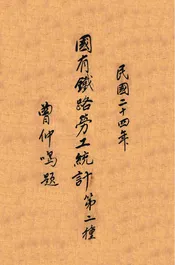 民國二十四年
國有鐵路勞工統計第二種
曾仲鳴題